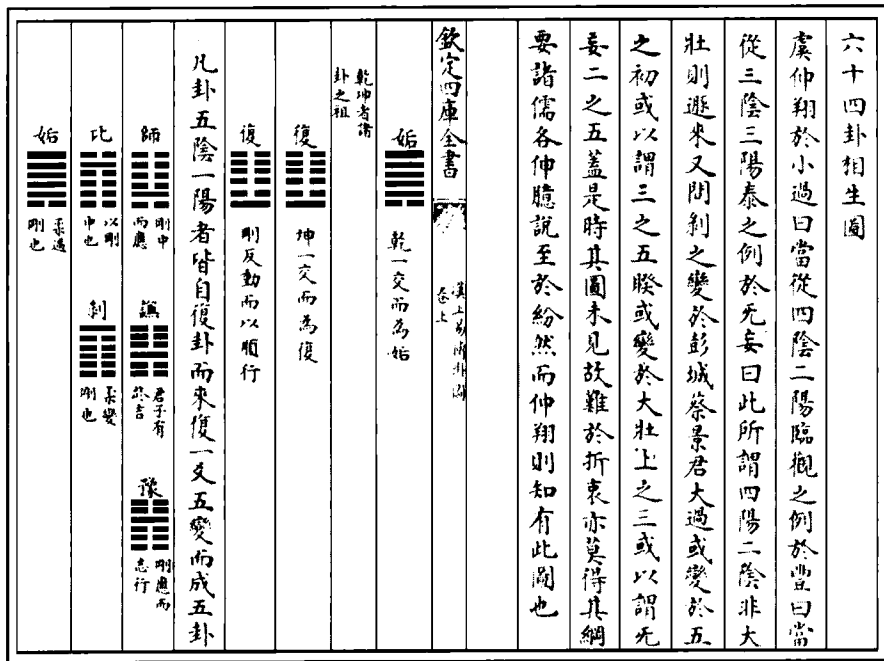 六十四卦相生圖
虞仲翔於小過曰當從四陰二陽臨觀之例於豐曰當
從三陰三陽泰之例於无妄曰此所謂四陽二陰非大
壯則遯來又問剝之變於彭城蔡景君大過或變於五
之初或以謂三之五睽或變於大壯上之三或以謂无
妄二之五蓋是時其圖未見故難於折衷亦莫得其綱
要諸儒各伸臆說至於紛然而仲翔則知有此圖也
欽定四庫全書
漢上易傳卦圖
卷上
姤 乾一交而為姤
乾坤者諸
卦之祖
復 坤一交而為復
復 剛反動而以順行
凡卦五陰一陽者皆自復卦而來復一爻五變而成五卦
師 剛中
而應
謙 君子有
終吉
豫 剛應而
志行
比 以剛
中也
剝 柔變
剛也
姤 柔遇
剛也